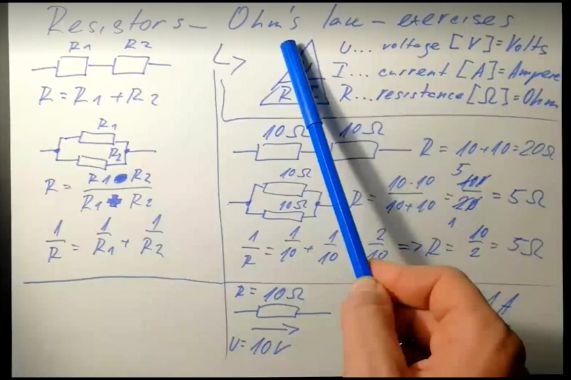 Resistors - Ohm's law - exercises
R1 R2
R = R1 + R2
R1
R2
R = R1 • R2 / R1 + R2
1/R = 1/R1 + 1/R2
U... voltage [V] = Volts
I... current [A] = Ampere
R... resistance [Ω] = Ohm
R
10Ω 10Ω
R = 10+10 = 20Ω
10Ω
10Ω
R = 10·10 / 10+10 = 5 / 1 = 5Ω
1/R = 1/10 + 1/10 2/10 => R = 10/2 = 5Ω
R = 10Ω
U = 10V
A